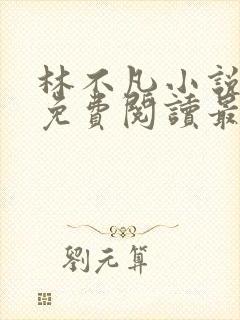 林不凡小說
免費閱讀最
劉元算